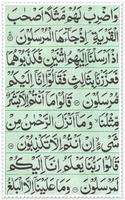 وَاضْرِبْ لَهُم مَّثَلًا أَصْحَٰبَ
الْقَرْيَةِ إِذْ جَآءَهَا الْمُرْسَلُونَ
إِذْ أَرْسَلْنَآ إِلَيْهِمُ اثْنَيْنِ فَكَذَّبُوهُمَا
فَعَزَّزْنَا بِثَالِثٍ فَقَالُوٓا إِنَّآ إِلَيْكُم
مُّرْسَلُونَ قَالُوا مَآ أَنتُمْ إِلَّا بَشَرٌ
مِّثْلُنَا وَمَآ أَنزَلَ الرَّحْمَٰنُ مِن
شَىْءٍ إِنْ أَنتُمْ إِلَّا تَكْذِبُونَ
قَالُوا رَبُّنَا يَعْلَمُ إِنَّآ إِلَيْكُمْ
لَمُرْسَلُونَ وَمَا عَلَيْنَآ إِلَّا الْبَلَٰغُ